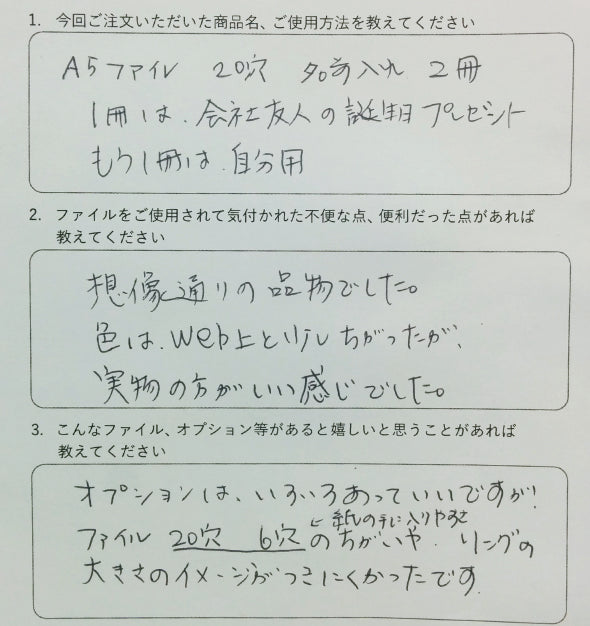 1. 今回ご注文いただいた商品名、ご使用方法を教えてください
A5ファイル 20穴 名前入れ 2冊
1冊は、会社友人の誕生日プレゼント
もう1冊は、自分用
2. ファイルをご使用されて気付かれた不便な点、便利だった点があれば
教えてください
想像通りの品物でした。
色は、web上と少しちがったが、
実物の方がいい感じでした。
3. こんなファイル、オプション等があると嬉しいと思うことがあれば
教えてください
オプションは、いろいろあっていいですが!
←紙の手に入りやすさ
ファイル 20穴 6穴のちがいや、リングの
大きさのイメージがつきにくかったです